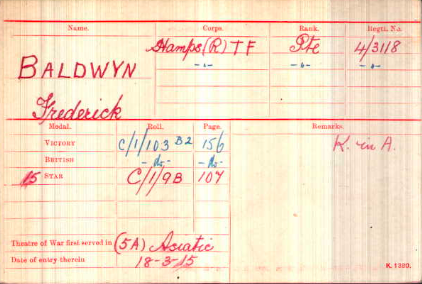 Name. Corps. Rank. Regtl. No.
BALDWYN Hamps.(R) T F Pte 4/3118
-"- -"- -"-
Frederick
Medal. Roll. Page. Remarks.
VICTORY C/1/103 B2 156 K. in A.
BRITISH -do- -do-
15 STAR C/1/9B 107
Theatre of War first served in (5A) Asiatic
Date of entry therein 18-3-15
K. 1380.